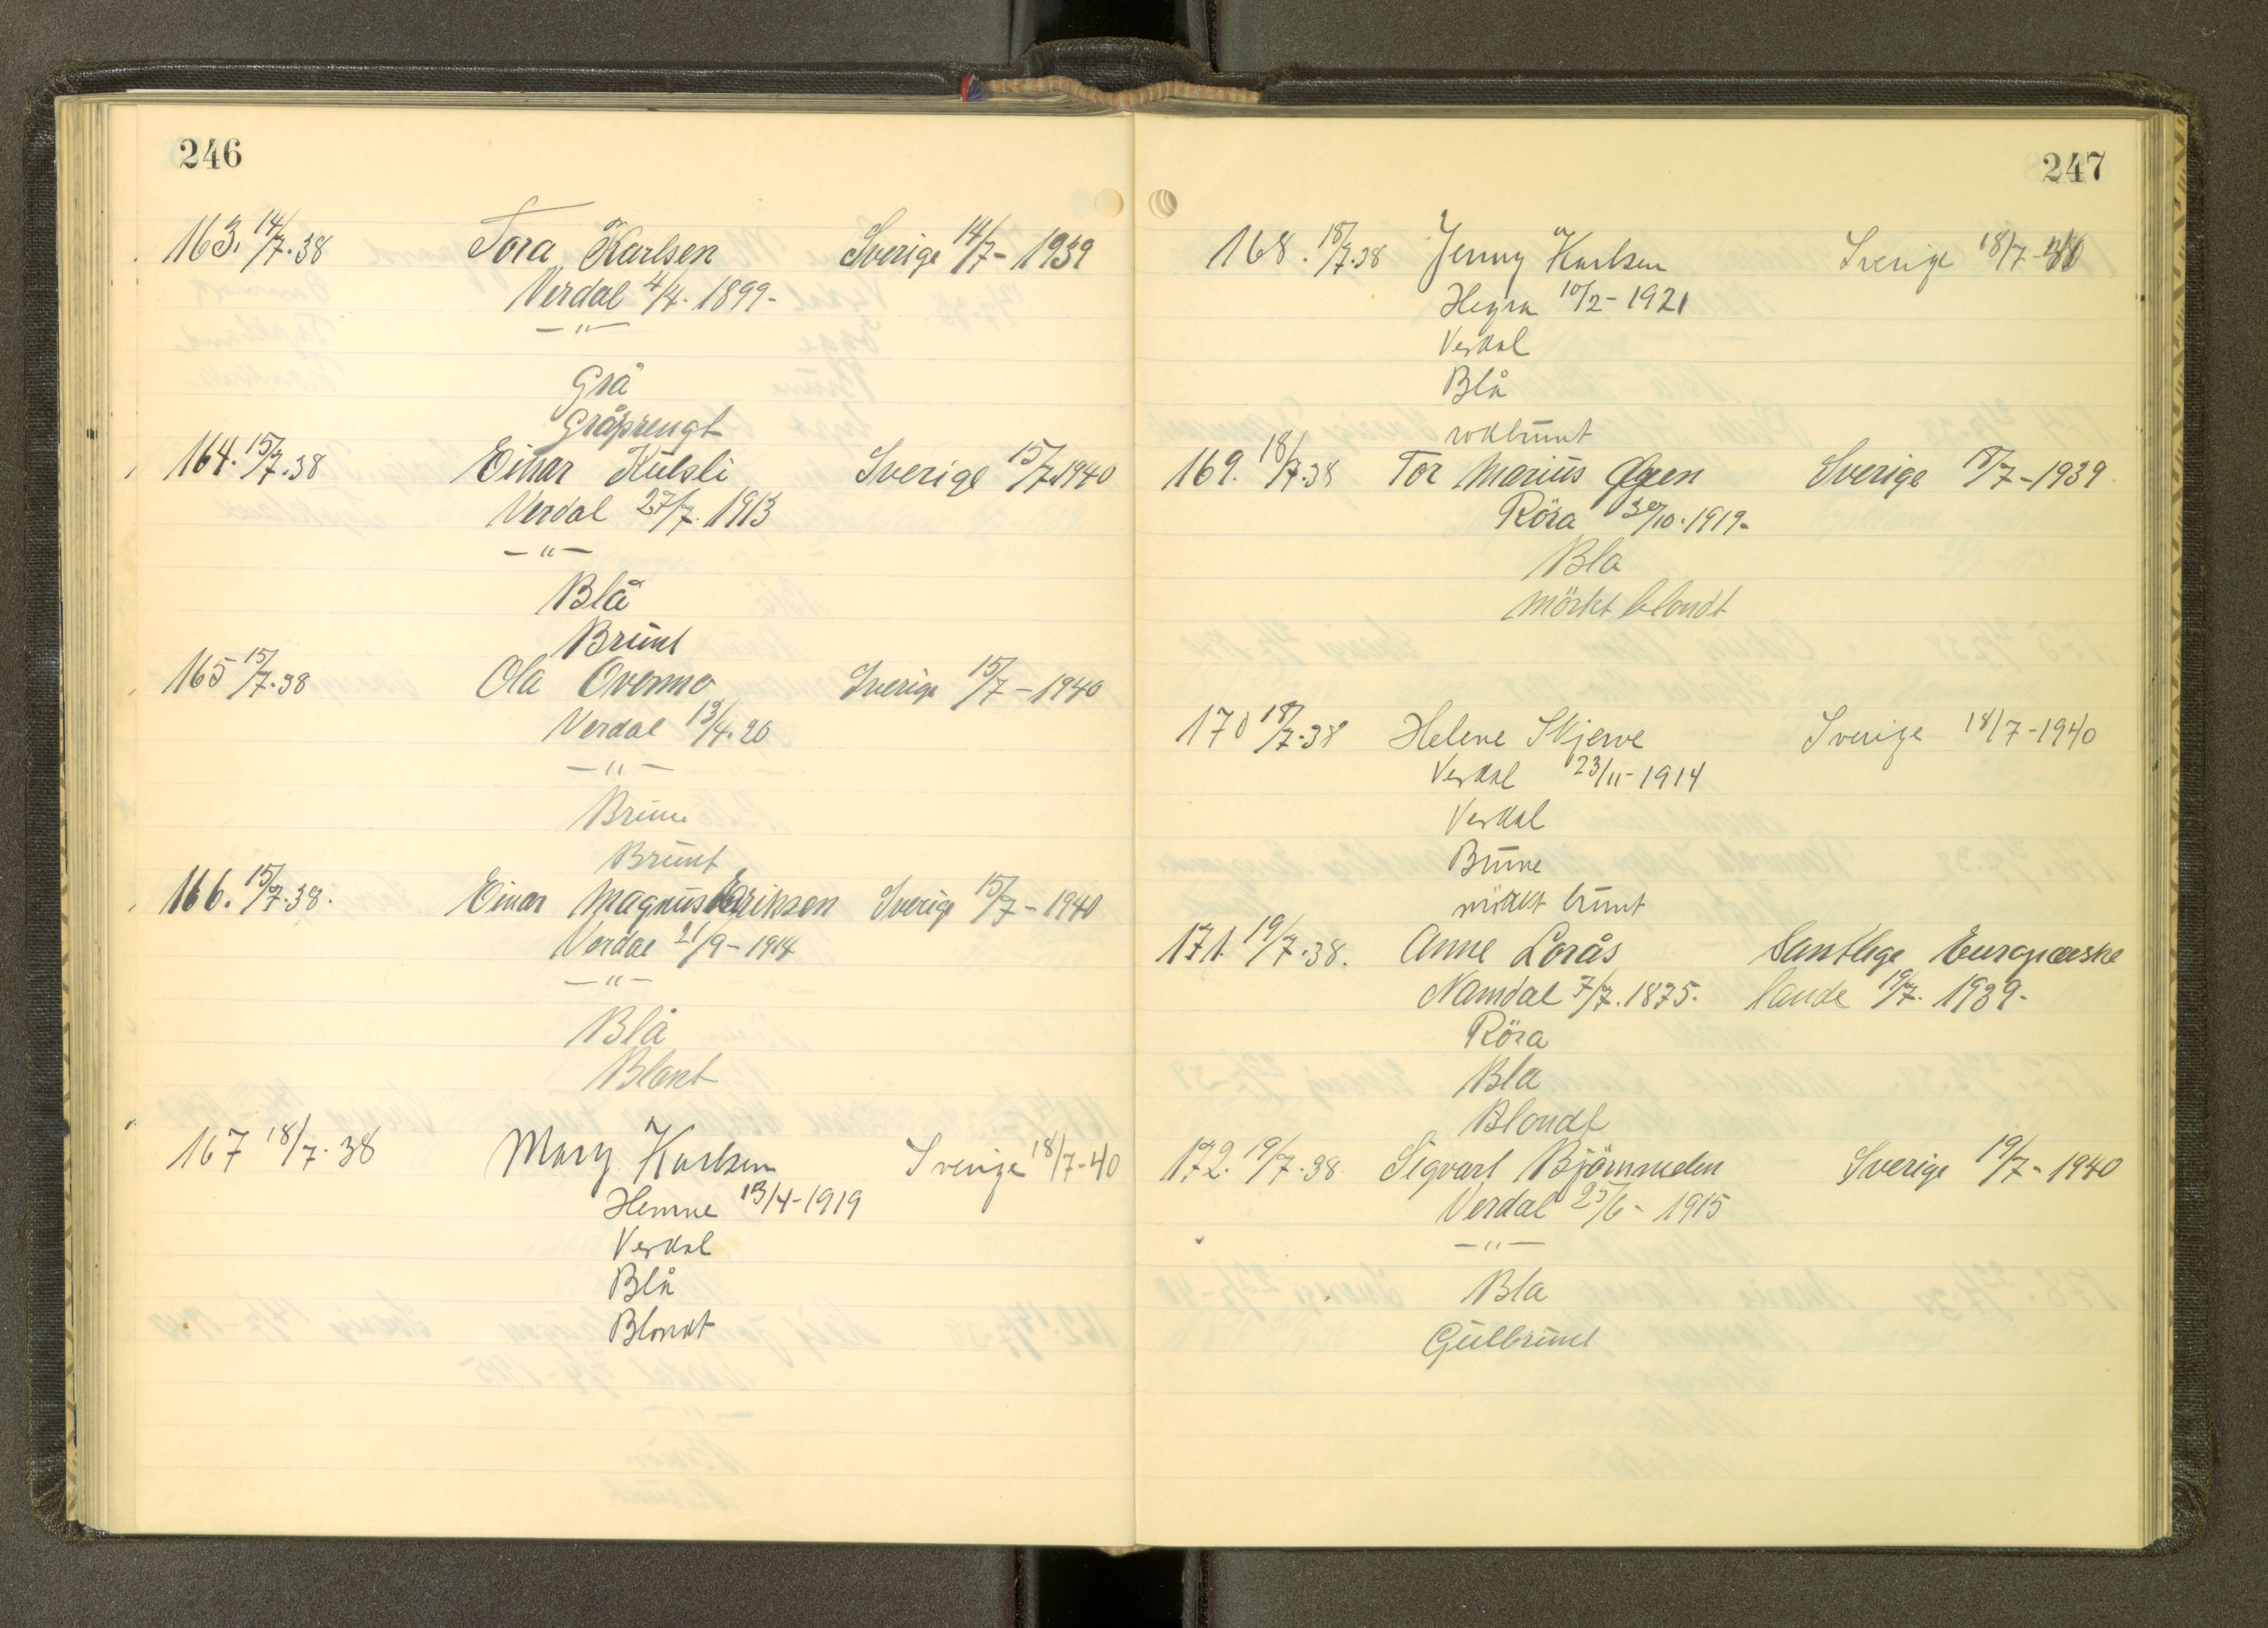 246
163. 14/7.38 Tora Karlsen Sverige 14/7-1939
Verdal 4/4. 1899-
-"-
Grå
Gråsprengt
164. 15/7.38 Einar Kulsli Sverige 15/7.1940
Verdal 27/7. 1913
-"-
Blå
Brunt
165 15/7.38 Ola Overmo Sverige 15/7-1940
Verdal 13/4.20
-"-
Brune
Brunt
166. 15/7.38. Einar Magnus Eriksen Sverige 15/7-1940
Verdal 21/9-1914
-"-
Blå
Blont
167 18/7.38 Mary Karlsen Sverige 18/7-40
Hemne 13/4-1919
Verdal
Blå
Blondt
247
168. 18/7.38 Jenny Karlsen Sverige 18/7-40
Hegra 10/2-1921
Verdal
Blå
rødbrunt
169. 18/7.38 Tor Marius Øgen Sverige 18/7-1939
Röra 30/10.1919-
Bla
mörkt blondt
170 18/7.38 Helene Skjerve Sverige 18/7-1940
Verdal 23/11-1914
Verdal
Brune
mörkt brunt
171. 19/7.38. Anne Lorås Samtlige Europæiske
Namdal 7/7.1875. lande 19/7. 1939-
Röra
Bla
Blondt
172. 19/7.38 Sigvart Sverige 19/7-1940
Verdal 25/6-1915
-"-
Bla
Gulbrunt